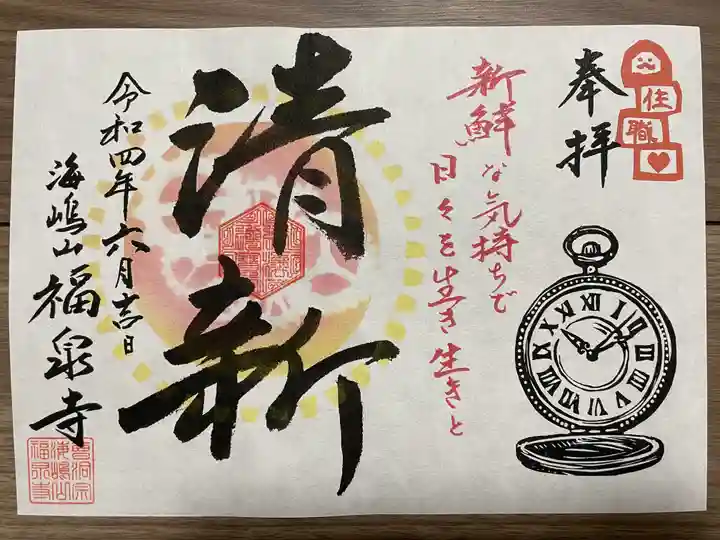 住
職
奉拝
新鮮な気持ちで
日々を生き生きと
清新
令和四年六月吉日
海嶋山福泉寺
XII
I
II
III
IIII
V
VI
VII
VIII
IX
X
XI
曹洞宗
海嶋山
福泉寺